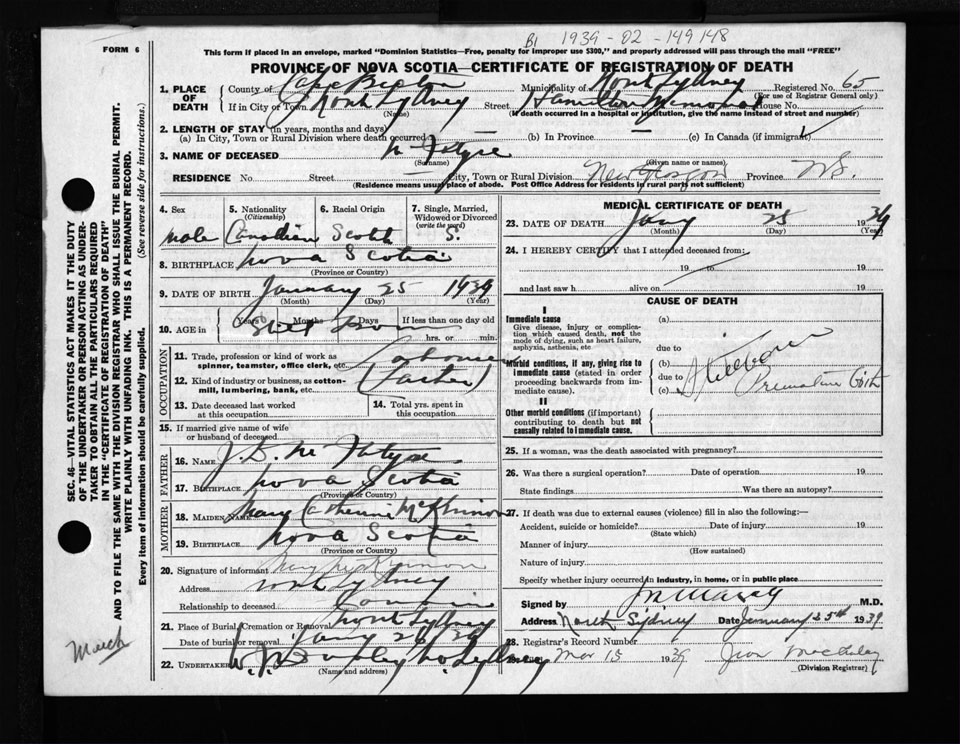 B1 1939 - 02 - 149148
FORM 6
This form if placed in an envelope, marked "Dominion Statistics—Free, penalty for improper use $300," and properly addressed will pass through the mail "FREE"
PROVINCE OF NOVA SCOTIA—CERTIFICATE OF REGISTRATION OF DEATH
1. PLACE OF DEATH
County of Cape Breton Municipality of North Sydney Registered No. 65
(For use of Registrar General only)
If in City or Town North Sydney Street Hamilton Memorial House No.
(Name) (If death occurred in a hospital or institution, give the name instead of street and number)
2. LENGTH OF STAY (in years, months and days)
(a) In City, Town or Rural Division where death occurred — (b) In Province — (c) In Canada (if immigrant)
3. NAME OF DECEASED
(Surname) (Given name or names)
RESIDENCE No. Street City, Town or Rural Division New Glasgow Province N.S.
(Residence means usual place of abode. Post Office Address for residents in rural parts not sufficient)
4. Sex 5. Nationality (Citizenship) 6. Racial Origin 7. Single, Married, Widowed or Divorced (write the word)
male Canadian Scotch S.
8. BIRTHPLACE Nova Scotia
(Province or Country)
9. DATE OF BIRTH January 25 1939
(Month) (Day) (Year)
10. AGE in Years Months Days If less than one day old
Still Born
hrs. or min.
OCCUPATION
11. Trade, profession or kind of work as spinner, teamster, office clerk, etc.
12. Kind of industry or business, as cotton-mill, lumbering, bank, etc. (Father)
13. Date deceased last worked at this occupation
14. Total yrs. spent in this occupation
15. If married give name of wife or husband of deceased
FATHER
16. NAME J. D.
17. Birthplace Nova Scotia
(Province or Country)
MOTHER
18. MAIDEN NAME Mary Catherine McKinnon
19. BIRTHPLACE Nova Scotia
(Province or Country)
20. Signature of informant McKinnon
Address North Sydney
Relationship to deceased
21. Place of Burial, Cremation or Removal North Sydney
Date of burial or removal Jany 26/39
22. UNDERTAKER No. Sydney
(Name and address)
MEDICAL CERTIFICATE OF DEATH
23. DATE OF DEATH Jany 25 1939
(Month) (Day) (Year)
24. I HEREBY CERTIFY that I attended deceased from:
19 to 19
and last saw h alive on 19
CAUSE OF DEATH
I
Immediate cause
Give disease, injury or complication which caused death, not the mode of dying, such as heart failure, asphyxia, asthenia, etc.
(a)
due to
Morbid conditions, if any, giving rise to immediate cause (stated in order proceeding backwards from immediate cause).
(b) Stillborn
due to
(c) Premature Birth
II
Other morbid conditions (if important) contributing to death but not causally related to immediate cause.
25. If a woman, was the death associated with pregnancy?
26. Was there a surgical operation? Date of operation 19
State findings Was there an autopsy?
27. If death was due to external causes (violence) fill in also the following:—
Accident, suicide or homicide? Date of injury 19
(State which)
Manner of injury
(How sustained)
Nature of injury
Specify whether injury occurred in industry, in home, or in public place
Signed by M.D.
Address North Sydney Date January 25th 1939
28. Registrar's Record Number
Mar 15 1939
(Division Registrar)
SEC. 46—VITAL STATISTICS ACT MAKES IT THE DUTY OF THE UNDERTAKER OR PERSON ACTING AS UNDERTAKER TO OBTAIN ALL THE PARTICULARS REQUIRED IN THE "CERTIFICATE OF REGISTRATION OF DEATH"
AND TO FILE THE SAME WITH THE DIVISION REGISTRAR WHO SHALL ISSUE THE BURIAL PERMIT.
WRITE PLAINLY WITH UNFADING INK. THIS IS A PERMANENT RECORD.
Every item of information should be carefully supplied. (See reverse side for instructions.)
March